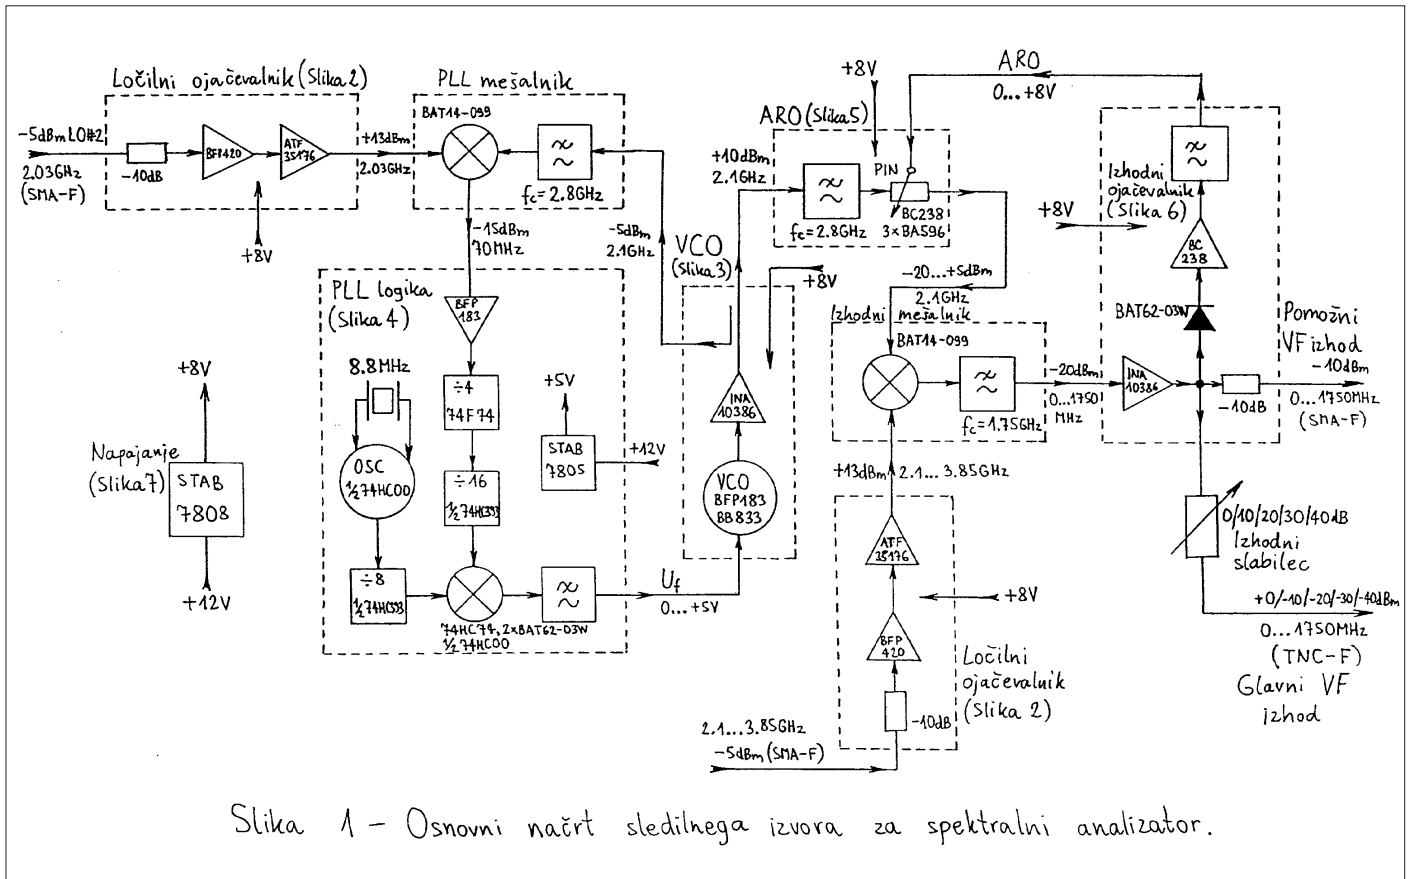 Ločilni ojačevalnik (Slika 2)
-5dBm LO#2
2.03GHz
(SMA-F)
-10dB
BFP420
ATF
35176
+8V
+13dBm
2.03GHz
PLL mešalnik
BAT14-099
≈
fc=2.8GHz
-15dBm
70MHz
-5dBm
2.1GHz
PLL logika
(Slika 4)
BFP
183
8.8MHz
÷4
74F74
OSC
1/2 74HC00
÷16
1/2 74HC393
÷8
1/2 74HC393
74HC74, 2xBAT62-03W
1/2 74HC00
≈
+5V
STAB
7805
+12V
Uf
0...+5V
Napajanje
(Slika 7)
+8V
STAB
7808
+12V
VCO
(Slika 3)
+8V
INA
10386
VCO
BFP183
BB833
+10dBm
2.1GHz
ARO (Slika 5)
+8V
≈
fc=2.8GHz
PIN
BC238
3xBA596
ARO
0...+8V
-20...+5dBm
2.1GHz
Izhodni mešalnik
BAT14-099
≈
fc=1.75GHz
-20dBm
0...1750
MHz
+13dBm
2.1...3.85GHz
ATF
35176
+8V
BFP
420
-10dB
Ločilni
ojačevalnik
(Slika 2)
2.1...3.85GHz
-5dBm (SMA-F)
Izhodni
ojačevalnik
(Slika 6)
+8V
≈
BC
238
BAT62-03W
INA
10386
-10dB
Pomožni
VF izhod
-10dBm
0...1750MHz
(SMA-F)
0/10/20/30/40dB
Izhodni
slabilec
+0/-10/-20/-30/-40dBm
0...1750MHz
(TNC-F)
Glavni VF
izhod
Slika 1 - Osnovni načrt sledilnega izvora za spektralni analizator.